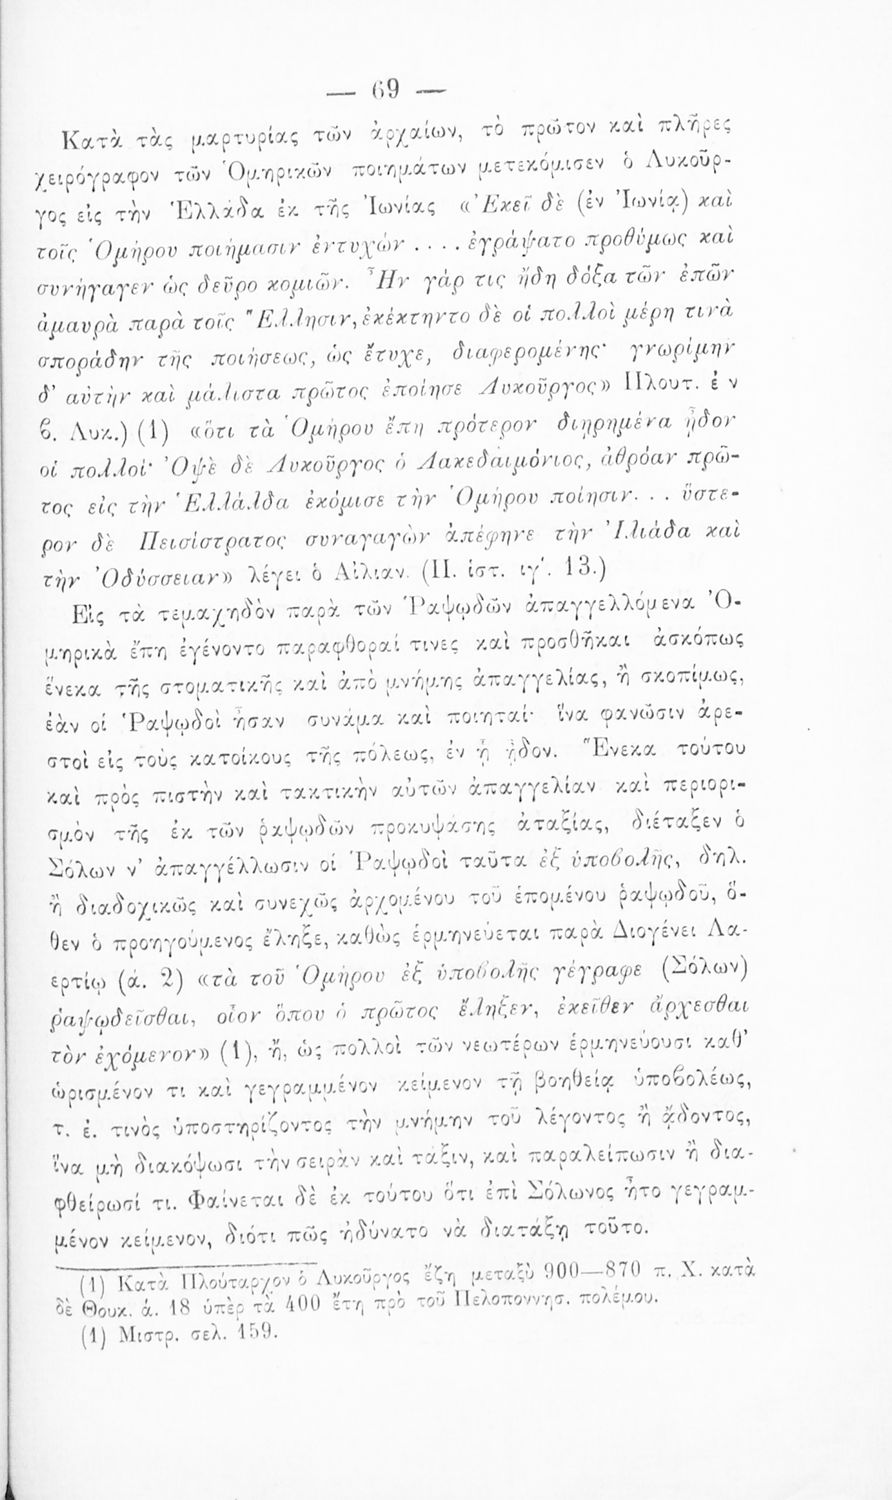 — 69 —
Κατὰ τὰς μαρτυρίας τῶν ἀρχαίων, τὸ πρῶτον καὶ πλῆρες
χειρόγραφον τῶν Ὁμηρικῶν ποιημάτων μετεκόμισεν ὁ Λυκοῦρ-
γος εἰς τὴν Ἑλλάδα ἐκ τῆς Ἰωνίας «Ἐκεῖ δὲ (ἐν Ἰωνίᾳ) καὶ
τοῖς Ὁμήρου ποιήμασιν ἐντυχὼν . . . . ἐγράψατο προθύμως καὶ
συνήγαγεν ὡς δεῦρο κομιῶν. Ἦν γάρ τις ἤδη δόξα τῶν ἐπῶν
ἀμαυρὰ παρὰ τοῖς Ἕλλησιν, ἐκέκτηντο δὲ οἱ πολλοὶ μέρη τινὰ
σποράδην τῆς ποιήσεως, ὡς ἔτυχε, διαφερομένης· γνωρίμην
δ' αὐτὴν καὶ μάλιστα πρῶτος ἐποίησε Λυκοῦργος» Πλουτ. ἐν
β. Λυκ.) (1) «ὅτι τὰ Ὁμήρου ἔπη πρότερον διῃρημένα ᾖδον
οἱ πολλοί· Ὀψὲ δὲ Λυκοῦργος ὁ Λακεδαιμόνιος, ἀθρόαν πρῶ-
τος εἰς τὴν Ἑλλάλδα ἐκόμισε τὴν Ὁμήρου ποίησιν. . . ὕστε-
ρον δὲ Πεισίστρατος συναγαγὼν ἀπέφηνε τὴν Ἰλιάδα καὶ
τὴν Ὀδύσσειαν» λέγει ὁ Αἰλιαν. (Π. ἱστ. ιγ'. 13.)
Εἰς τὰ τεμαχηδὸν παρὰ τῶν Ῥαψῳδῶν ἀπαγγελλόμενα Ὁ-
μηρικὰ ἔπη ἐγένοντο παραφθοραί τινες καὶ προσθῆκαι ἀσκόπως
ἕνεκα τῆς στοματικῆς καὶ ἀπὸ μνήμης ἀπαγγελίας, ἢ σκοπίμως,
ἐὰν οἱ Ῥαψῳδοὶ ἦσαν συνάμα καὶ ποιηταί· ἵνα φανῶσιν ἀρε-
στοὶ εἰς τοὺς κατοίκους τῆς πόλεως, ἐν ᾗ ᾖδον. Ἕνεκα τούτου
καὶ πρὸς πιστὴν καὶ τακτικὴν αὐτῶν ἀπαγγελίαν καὶ περιορι-
σμὸν τῆς ἐκ τῶν ῥαψῳδῶν προκυψάσης ἀταξίας, διέταξεν ὁ
Σόλων ν' ἀπαγγέλλωσιν οἱ Ῥαψῳδοὶ ταῦτα ἐξ ὑποβολῆς, δηλ.
ἢ διαδοχικῶς καὶ συνεχῶς ἀρχομένου τοῦ ἑπομένου ῥαψῳδοῦ, ὅ-
θεν ὁ προηγούμενος ἔληξε, καθὼς ἑρμηνεύεται παρὰ Διογένει Λα-
ερτίῳ (ά. 2) «τὰ τοῦ Ὁμήρου ἐξ ὑποβολῆς γέγραφε (Σόλων)
ῥαψῳδεῖσθαι, οἷον ὅπου ὁ πρῶτος ἔληξεν, ἐκεῖθεν ἄρχεσθαι
τὸν ἐχόμενον» (1), ἤ, ὡς πολλοὶ τῶν νεωτέρων ἑρμηνεύουσι καθ'
ὡρισμένον τι καὶ γεγραμμένον κείμενον τῇ βοηθείᾳ ὑποβολέως,
τ. ἐ. τινὸς ὑποστηρίζοντος τὴν μνήμην τοῦ λέγοντος ἢ ᾄδοντος,
ἵνα μὴ διακόψωσι τὴν σειρὰν καὶ τάξιν, καὶ παραλείπωσιν ἢ δια-
φθείρωσί τι. Φαίνεται δὲ ἐκ τούτου ὅτι ἐπὶ Σόλωνος ἦτο γεγραμ-
μένον κείμενον, διότι πῶς ἠδύνατο νὰ διατάξῃ τοῦτο.
(1) Κατὰ Πλούταρχον ὁ Λυκοῦργος ἔζη μεταξὺ 900—870 π. Χ. κατὰ
δὲ Θουκ. ά. 18 ὑπὲρ τὰ 400 ἔτη πρὸ τοῦ Πελοποννησ. πολέμου.
(1) Μιστρ. σελ. 159.